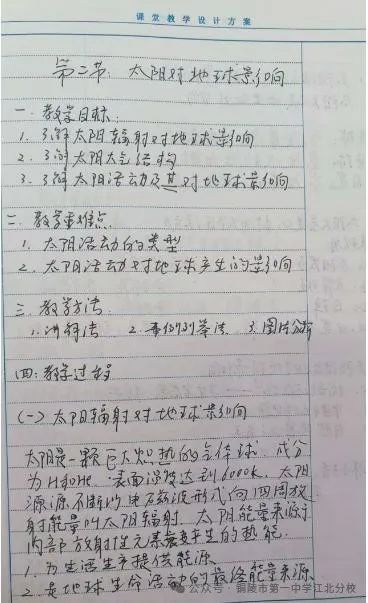 课堂教学设计方案
第二节：太阳对地球影响
一. 教学目标：
1. 了解太阳辐射对地球影响
2. 了解太阳大气结构
3. 了解太阳活动及其对地球影响
二. 教学重难点
1. 太阳活动的类型
2. 太阳活动对地球产生的影响
三. 教学方法
1. 讲解法 2. 事例列举法 3. 图片分析
四. 教学过程
(一) 太阳辐射对地球影响
太阳是一颗巨大炽热的气体球. 成分
为H和He. 表面温度达到6000K. 太阳
源源不断以电磁波形式向四周放
射能量叫太阳辐射. 太阳能量来源于
内部放射性元素衰变产生的热能.
1. 为生活生产提供能源.
2. 是地球生命活动的最终能量来源
公众号·铜陵市第一中学江北分校